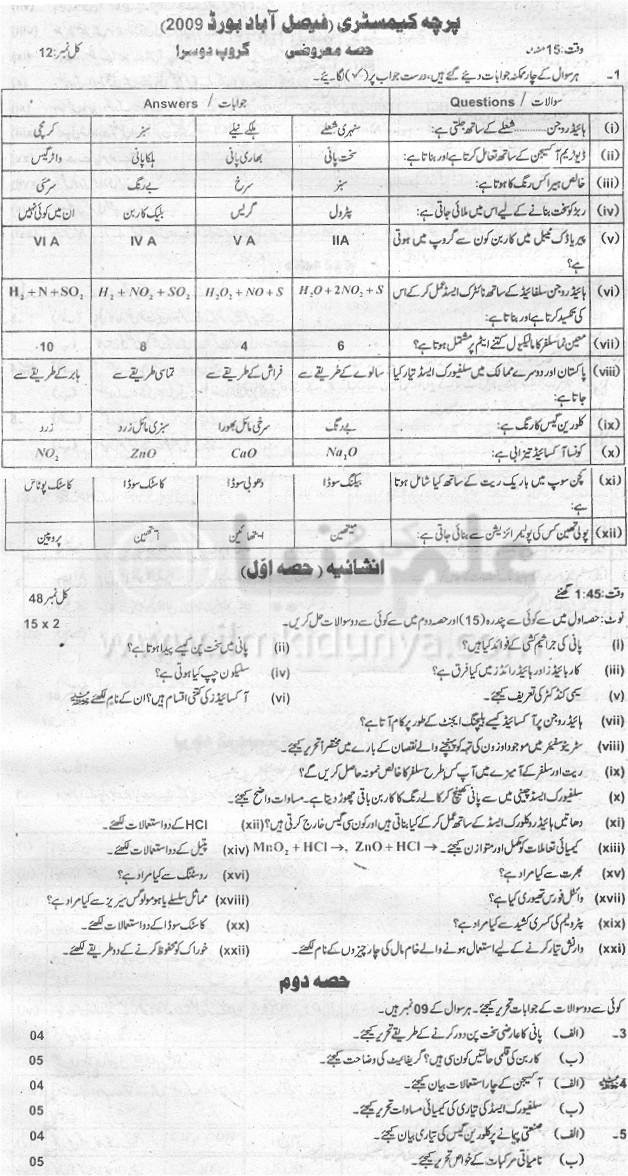 پرچہ کیمسٹری (فیصل آباد بورڈ 2009)
وقت: 15 منٹ حصہ معروضی گروپ دوسرا کل نمبر: 12
1- ہر سوال کے چار ممکنہ جوابات دیئے گئے ہیں، درست جواب پر (✓) لگائیے۔
سوالات / Questions جوابات / Answers
(i) ہائیڈروجن ......... شعلے کے ساتھ جلتی ہے: سنہری شعلے ہلکے نیلے سبز کرمچی
(ii) ڈیوٹریم آکسیجن کے ساتھ تعامل کرتا ہے اور بناتا ہے: سخت پانی بھاری پانی ہلکا پانی واٹر گیس
(iii) خالص ہیرا کس رنگ کا ہوتا ہے: سبز سرخ بے رنگ سرمئی
(iv) ربڑ کو سخت بنانے کے لیے اس میں ملائی جاتی ہے: پٹرول گریس بلیک کاربن ان میں کوئی نہیں
(v) پیریاڈک ٹیبل میں کاربن کون سے گروپ میں ہوتی ہے؟ IIA V A IV A VI A
(vi) ہائیڈروجن سلفائیڈ کے ساتھ نائٹرک ایسڈ عمل کر کے اس کی تکسید کرتا ہے اور بناتا ہے: H₂O+2NO₂+S H₂O₂+NO+S H₂+NO₂+SO₂ H₂+N+SO₂
(vii) معین نما سلفر کا مالیکیول کتنے ایٹم پر مشتمل ہوتا ہے؟ 6 4 8 10
(viii) پاکستان اور دوسرے ممالک میں سلفیورک ایسڈ تیار کیا جاتا ہے: سالوے کے طریقے سے فراش کے طریقے سے تماسی طریقے سے ہابر کے طریقے سے
(ix) کلورین گیس کا رنگ ہے: بے رنگ سرخی مائل بھورا سبزی مائل زرد زرد
(x) کونسا آکسائیڈ تیزابی ہے: Na₂O CaO ZnO NO₂
(xi) کچن سوپ میں باریک ریت کے ساتھ کیا شامل ہوتا ہے: بیکنگ سوڈا دھوبی سوڈا کاسٹک سوڈا کاسٹک پوٹاس
(xii) پولی تھین کس کی پولیمرائزیشن سے بنائی جاتی ہے: میتھین ایتھائین ایتھین پروپین
انشائیہ (حصہ اوّل)
وقت: 1:45 گھنٹے کل نمبر 48
نوٹ: حصہ اول میں سے کوئی سے پندرہ (15) اور حصہ دوم میں سے کوئی سے دو سوالات حل کریں۔ 15 x 2
(i) پانی کی جراثیم کشی کے فوائد کیا ہیں؟ (ii) پانی میں سخت پن کیسے پیدا ہوتا ہے؟
www.ilmkidunya.com
(iii) کاربائیڈز اور ہائیڈرائڈز میں کیا فرق ہے؟ (iv) سلیکون چپ کیا ہوتی ہے؟
(v) سیمی کنڈکٹر کی تعریف کیجئے۔ (vi) آکسائیڈز کی کتنی اقسام ہیں؟ ان کے نام لکھئے۔
(vii) ہائیڈروجن پر آکسائیڈ کیسے بلیچنگ ایجنٹ کے طور پر کام آتا ہے؟
(viii) سٹریٹوسفیئر میں موجود اوزون کی تہہ کو پہنچنے والے نقصان کے بارے میں مختصراً تحریر کیجئے۔
(ix) ریت اور سلفر کے آمیزے میں آپ کس طرح سلفر کا خالص نمونہ حاصل کریں گے؟
(x) سلفیورک ایسڈ چینی میں سے پانی کھینچ کر کالے رنگ کا کاربن باقی چھوڑ دیتا ہے۔ مساوات واضح کیجئے۔
(xi) دھاتیں ہائیڈروکلورک ایسڈ کے ساتھ عمل کر کے کیا بناتی ہیں اور کون سی گیس خارج کرتی ہیں؟ (xii) HCl کے دو استعمالات لکھئے۔
(xiii) کیمیائی تعاملات کو مکمل اور متوازن کیجئے۔ MnO₂ + HCl →, ZnO + HCl → (xiv) پیتل کے دو استعمالات لکھئے۔
(xv) بھرت سے کیا مراد ہے؟ (xvi) روسٹنگ سے کیا مراد ہے؟
(xvii) وائٹل فورس تھیوری کیا ہے؟ (xviii) مماثل سلسلے یا ہومولوگس سیریز سے کیا مراد ہے؟
(xix) پٹرولیم کی کسری کشید سے کیا مراد ہے؟ (xx) کاسٹک سوڈا کے دو استعمالات لکھئے۔
(xxi) وارنش تیار کرنے کے لیے استعمال ہونے والے خام مال کی چار چیزوں کے نام لکھئے۔ (xxii) خوراک کو محفوظ کرنے کے دو طریقے لکھئے۔
حصہ دوم
کوئی سے دو سوالات کے جوابات تحریر کیجئے۔ ہر سوال کے 09 نمبر ہیں۔
3- (الف) پانی کا عارضی سخت پن دور کرنے کے طریقے تحریر کیجئے۔ 04
(ب) کاربن کی قلمی حالتیں کون سی ہیں؟ گریفائیٹ کی وضاحت کیجئے۔ 05
4- (الف) آکسیجن کے چار استعمالات بیان کیجئے۔ 04
(ب) سلفیورک ایسڈ کی تیاری کی کیمیائی مساوات تحریر کیجئے۔ 05
5- (الف) صنعتی پیمانے پر کلورین گیس کی تیاری بیان کیجئے۔ 04
(ب) نامیاتی مرکبات کے خواص تحریر کیجئے۔ 05